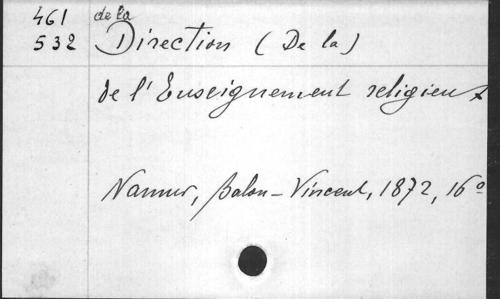 461 de la
532 Direction (De la)
de l'Enseignement religieux
Namur, Balon-Vincent, 1872, 16º